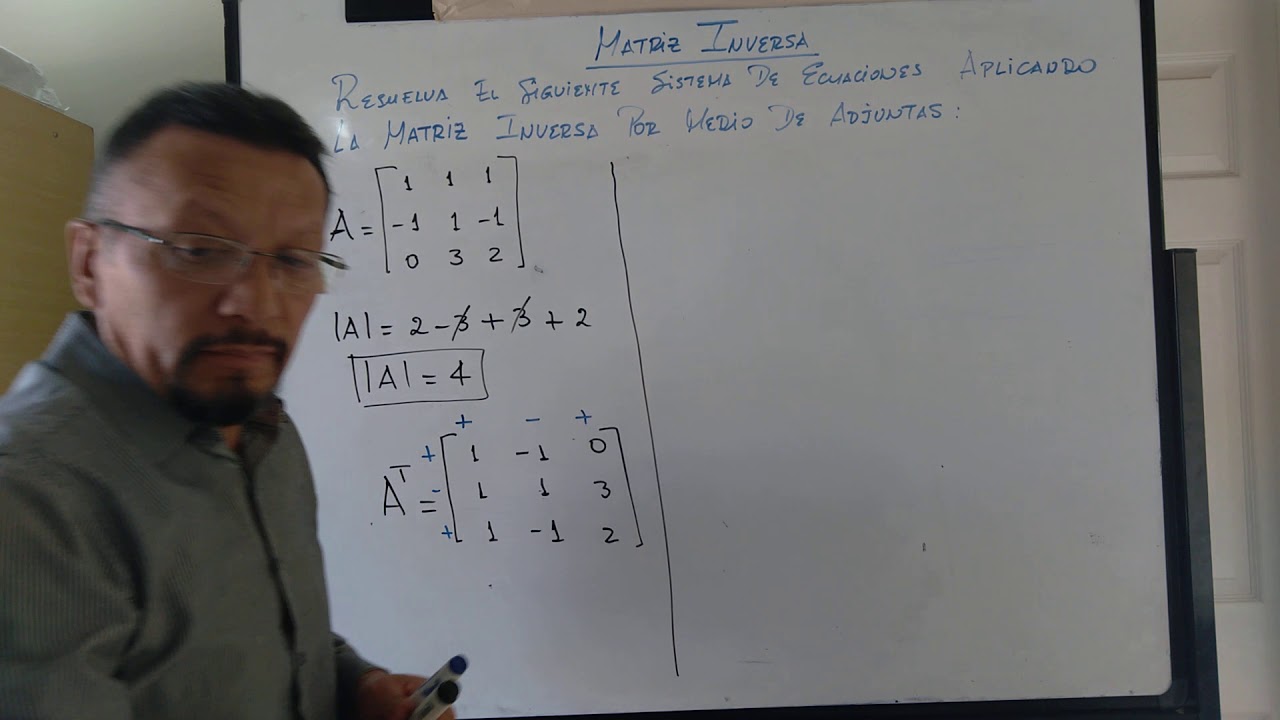 MATRIZ INVERSA
RESUELVA EL SIGUIENTE SISTEMA DE ECUACIONES APLICANDO
LA MATRIZ INVERSA POR MEDIO DE ADJUNTAS:
1 1 1
A = -1 1 -1
0 3 2
|A| = 2 - 3 + 3 + 2
|A| = 4
+ - +
+ 1 -1 0
Aᵀ = - 1 1 3
+ 1 -1 2